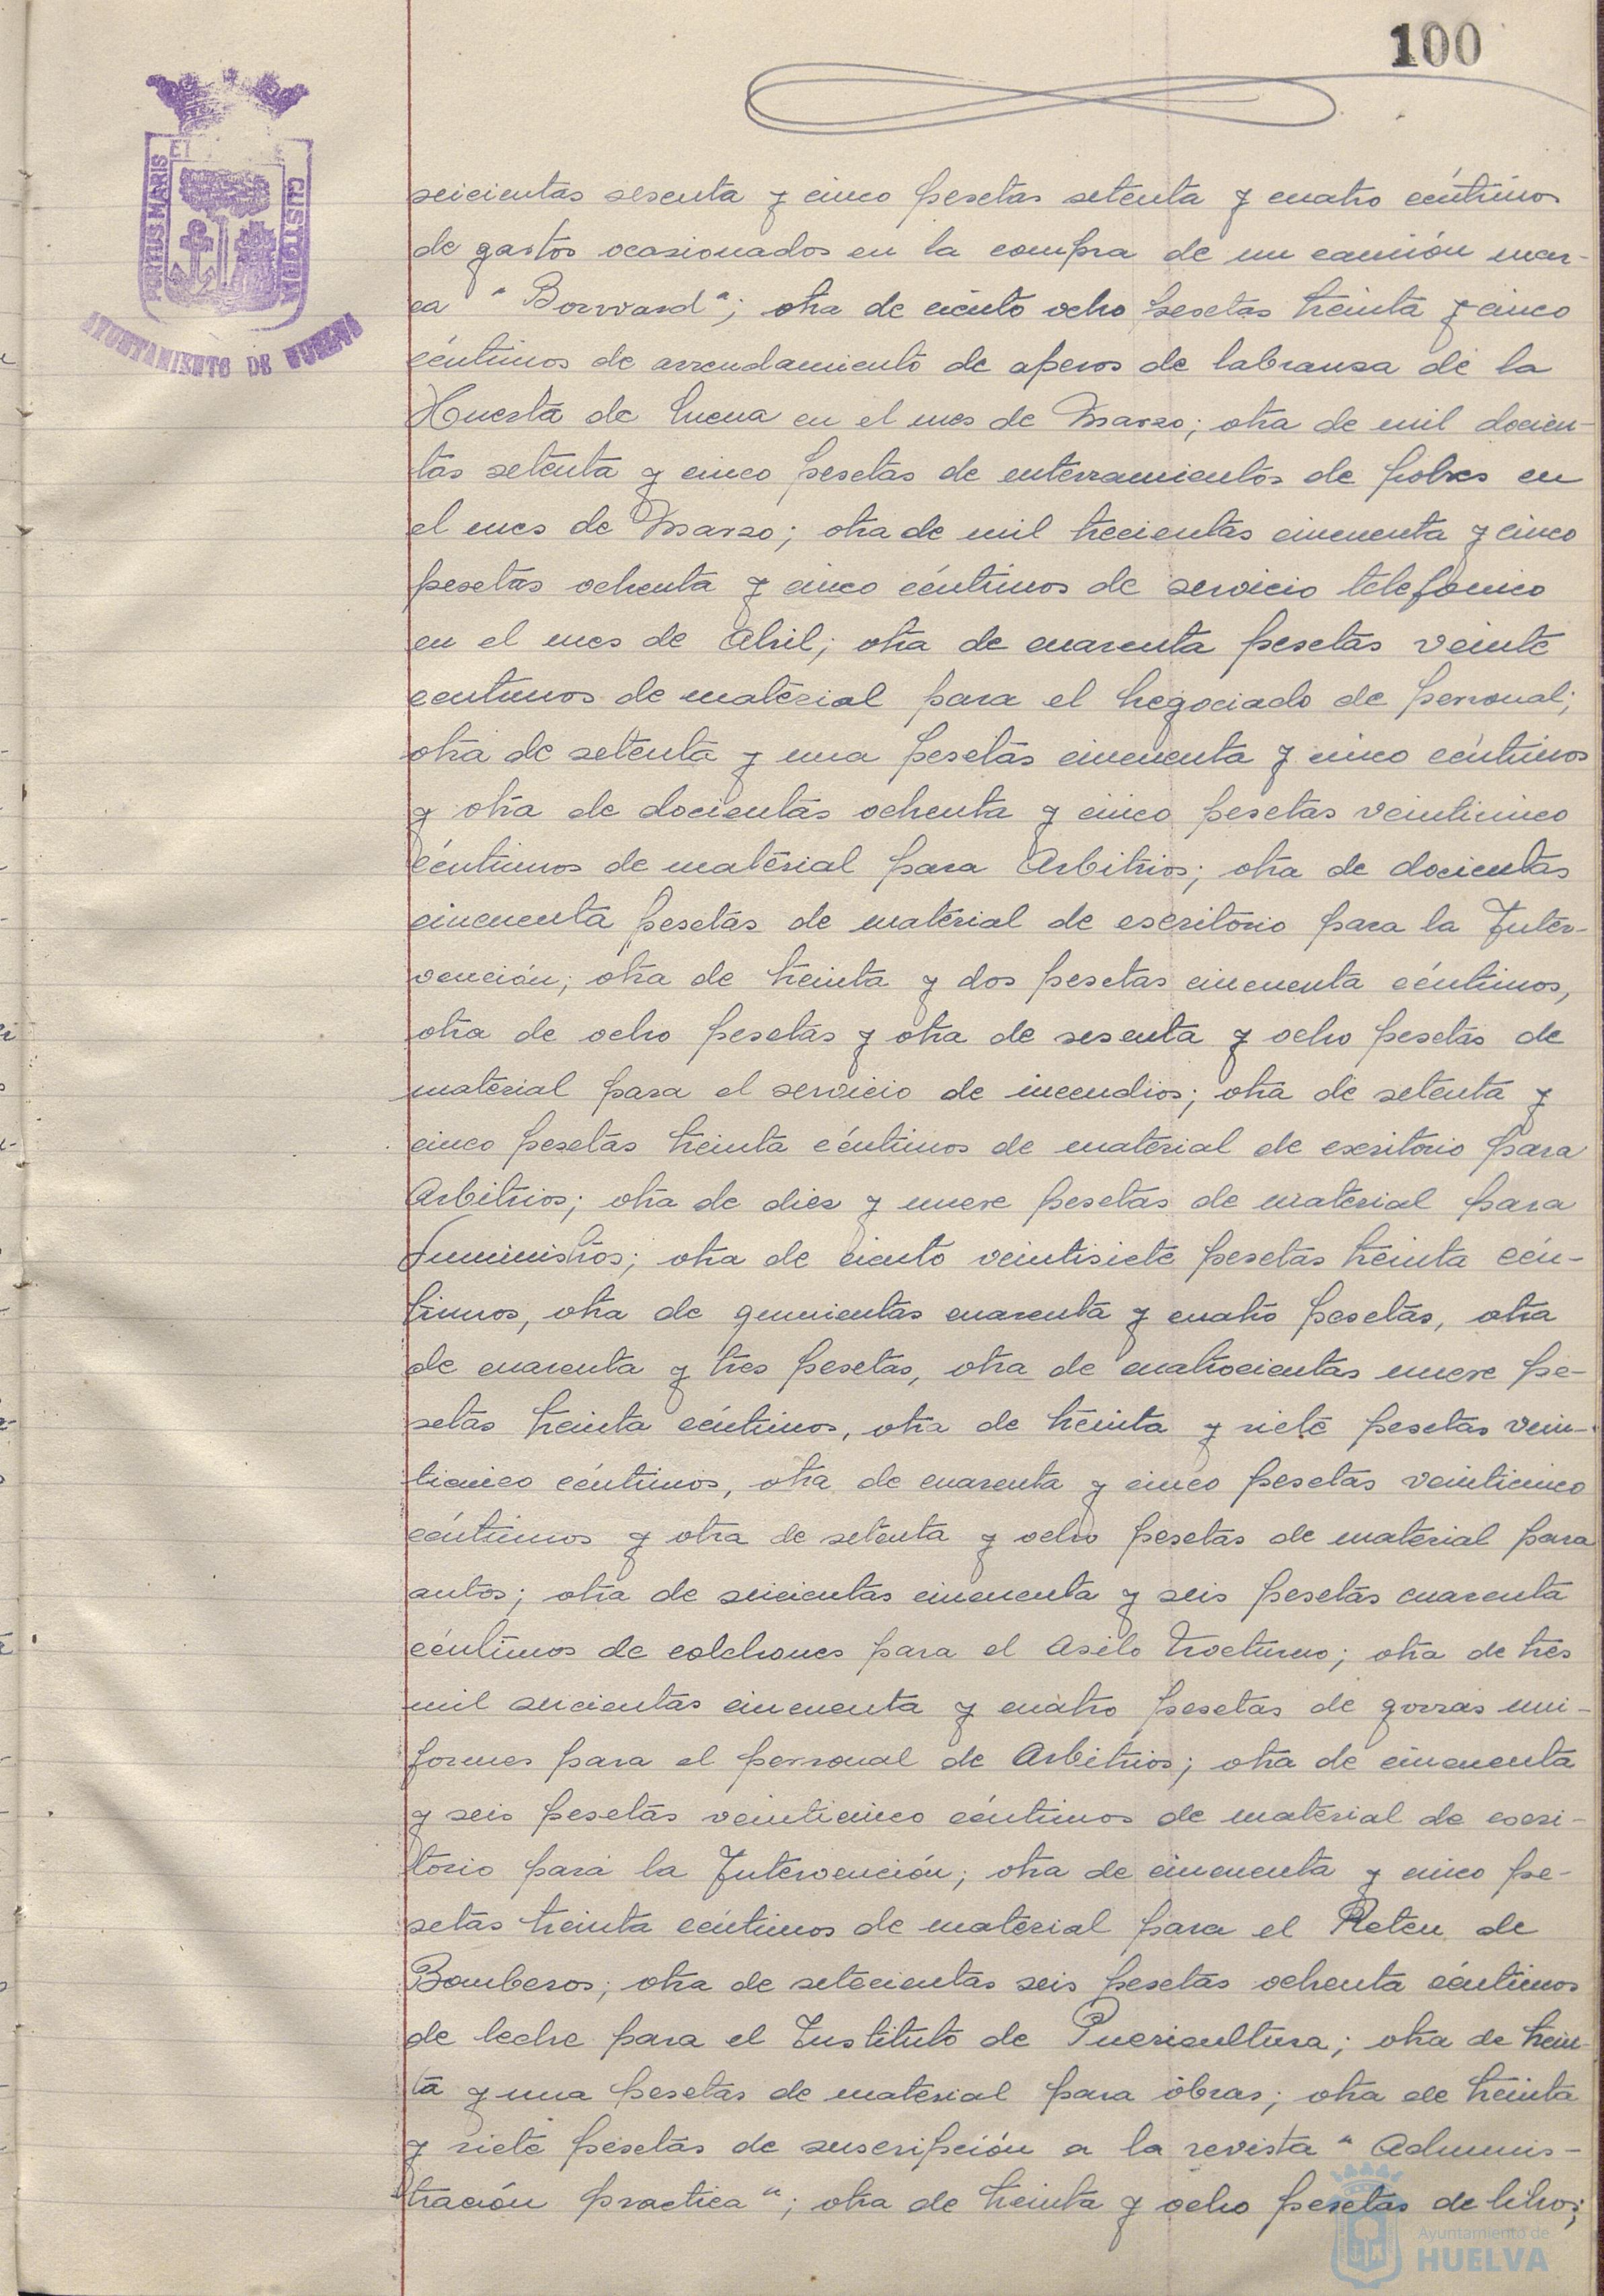 100
ET
PORTUS MARIS
CUSTODIA
AYUNTAMIENTO DE HUELVA
seicientas sesenta y cinco pesetas setenta y cuatro céntimos
de gastos ocasionados en la compra de un camión mar-
ca "Borward"; otra de ciento ocho pesetas treinta y cinco
céntimos de arrendamiento de aperos de labransa de la
Huerta de Mena en el mes de Marzo; otra de mil docien-
tas setenta y cinco pesetas de enterramientos de pobres en
el mes de Marzo; otra de mil trecientas cincuenta y cinco
pesetas ochenta y cinco céntimos de servicio telefonico
en el mes de Abril; otra de cuarenta pesetas veinte
centimos de material para el Negociado de personal;
otra de setenta y una pesetas cincuenta y cinco céntimos
y otra de docientas ochenta y cinco pesetas veinticinco
céntimos de material para Arbitrios; otra de docientas
cincuenta pesetas de material de escritorio para la Inter-
vención; otra de treinta y dos pesetas cincuenta céntimos,
otra de ocho pesetas y otra de sesenta y ocho pesetas de
material para el servicio de incendios; otra de setenta y
cinco pesetas treinta céntimos de material de escritorio para
Arbitrios; otra de diez y nueve pesetas de material para
Suministros; otra de ciento veintisiete pesetas treinta cén-
timos, otra de quinientas cuarenta y cuatro pesetas, otra
de cuarenta y tres pesetas, otra de cuatrocientas nueve pe-
setas treinta céntimos, otra de treinta y siete pesetas vein-
ticinco céntimos, otra de cuarenta y cinco pesetas veinticinco
céntimos y otra de setenta y ocho pesetas de material para
autos; otra de seicientas cincuenta y seis pesetas cuarenta
céntimos de colchones para el Asilo Nocturno; otra de tres
mil seicientas cincuenta y cuatro pesetas de gorras uni-
formes para el personal de Arbitrios; otra de cincuenta
y seis pesetas veinticinco céntimos de material de escri-
torio para la Intervención; otra de cincuenta y cinco pe-
setas treinta céntimos de material para el Reten de
Bomberos; otra de setecientas seis pesetas ochenta céntimos
de leche para el Instituto de Puericultura; otra de trein-
ta y una pesetas de material para obras; otra de treinta
y siete pesetas de suscripción a la revista "Adminis-
tración practica"; otra de treinta y ocho pesetas de libros;
Ayuntamiento de
HUELVA